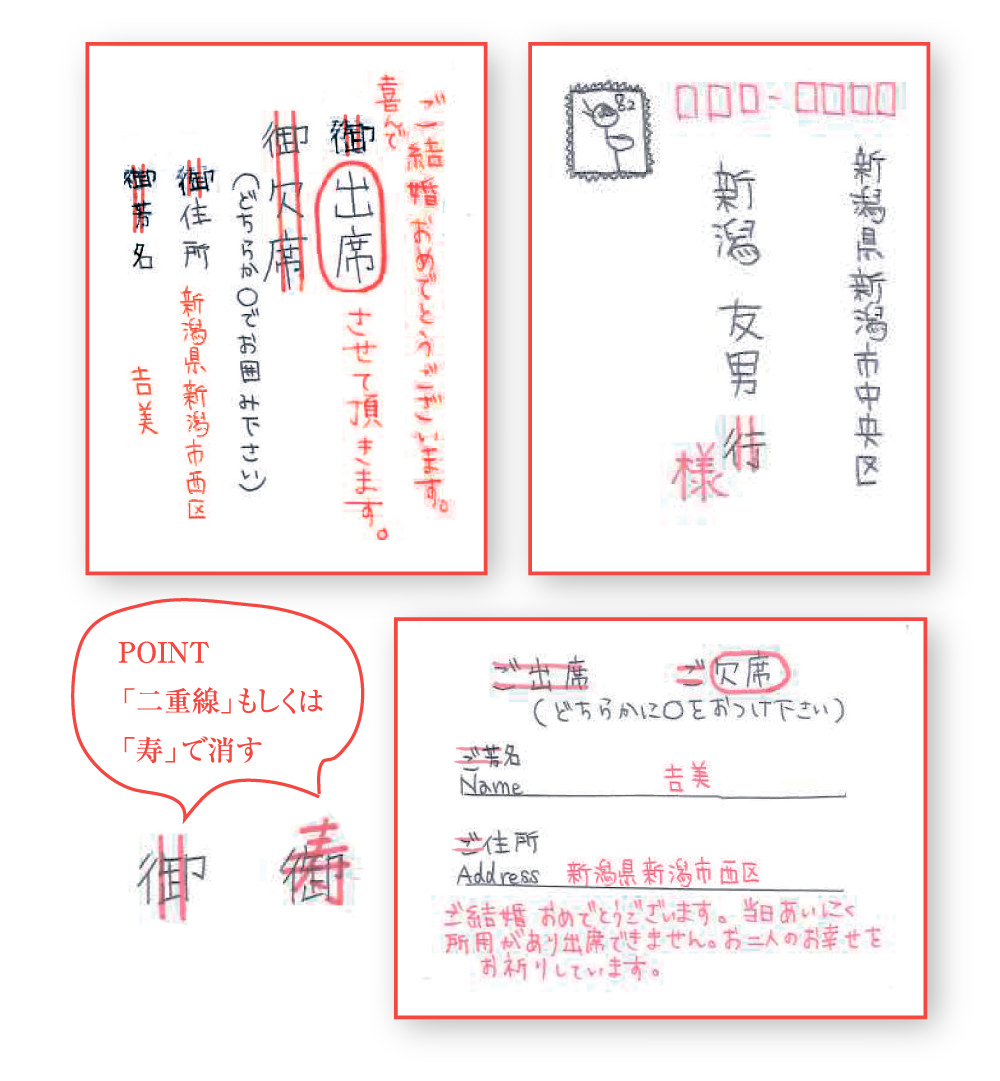 ご結婚おめでとうございます。
喜んで
御出席させて頂きます。
御欠席
(どちらか〇でお囲み下さい)
御住所 新潟県新潟市西区
御芳名 吉美
82
新潟県新潟市中央区
新潟 友男 行
様
POINT
「二重線」もしくは
「寿」で消す
御
御
寿
ご出席 ご欠席
(どちらかに〇をおつけ下さい)
ご芳名
Name 吉美
ご住所
Address 新潟県新潟市西区
ご結婚おめでとうございます。当日あいにく
所用があり出席できません。お二人のお幸せを
お祈りしています。